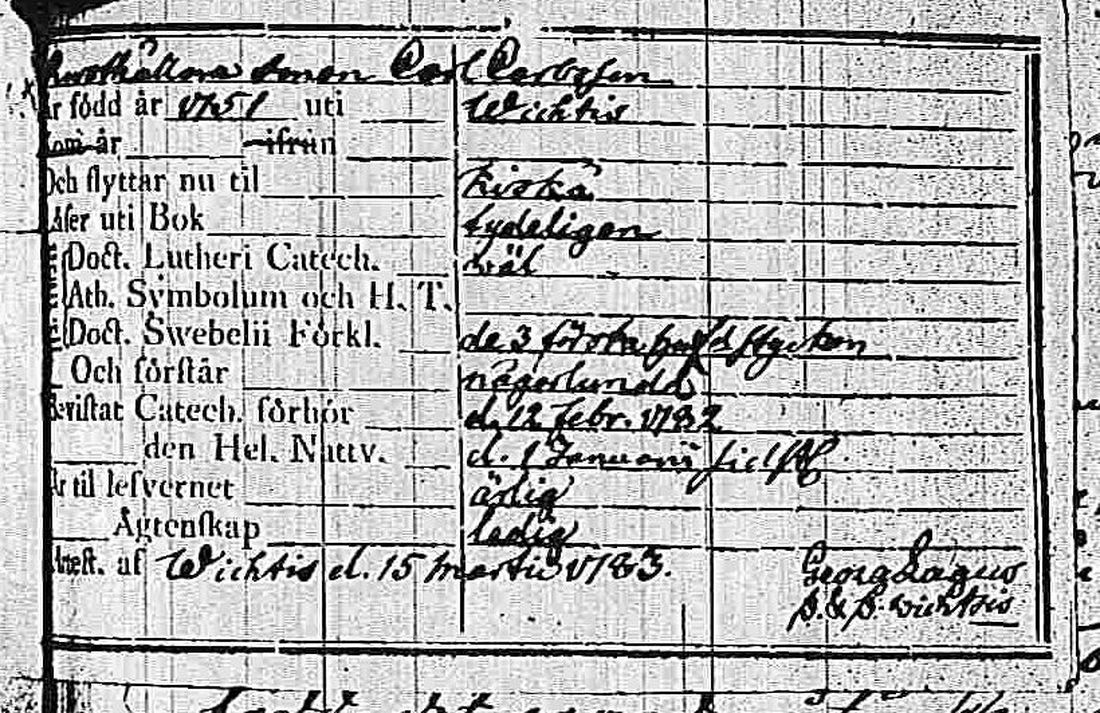 Carl Carlsson
Är född år 1751 uti Wichtis
Kom år ifrån
Och flyttar nu til Kisko
Läser uti Bok tydeligen
Doct. Lutheri Catech. wäl
Ath. Symbolum och H. T.
Doct. Swebelii Förkl. de 3 första hufvd stycken
Och förstår någorlunda
Bevistat Catech. förhör d. 12 Febr. 1782
den Hel. Nattv. d. 1 Januarii sidstl.
Är til lefvernet ärlig
Ägtenskap ledig
Attest. af Wichtis d. 15 Martii 1783. Georg Lagus
P. & P. Wichtis